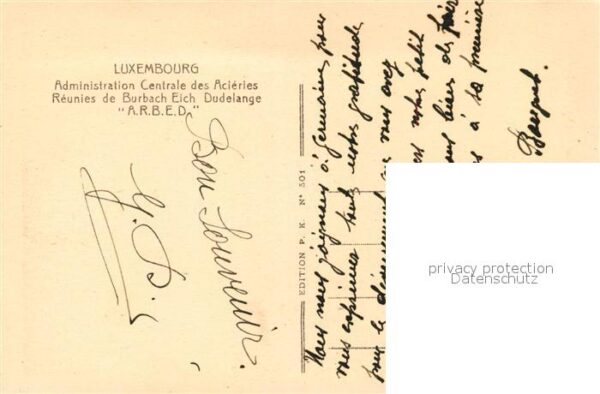 LUXEMBOURG
Administration Centrale des Aciéries
Réunies de Burbach Eich Dudelange
"A.R.B.E.D."
Bon Souvenir.
EDITION P. K. N° 501
Nous nous joignons à Germaine pour
vous exprimer toute notre gratitude
pour le dévouement
vous avez
notre petit
bien de
à sa première
privacy protection
Datenschutz